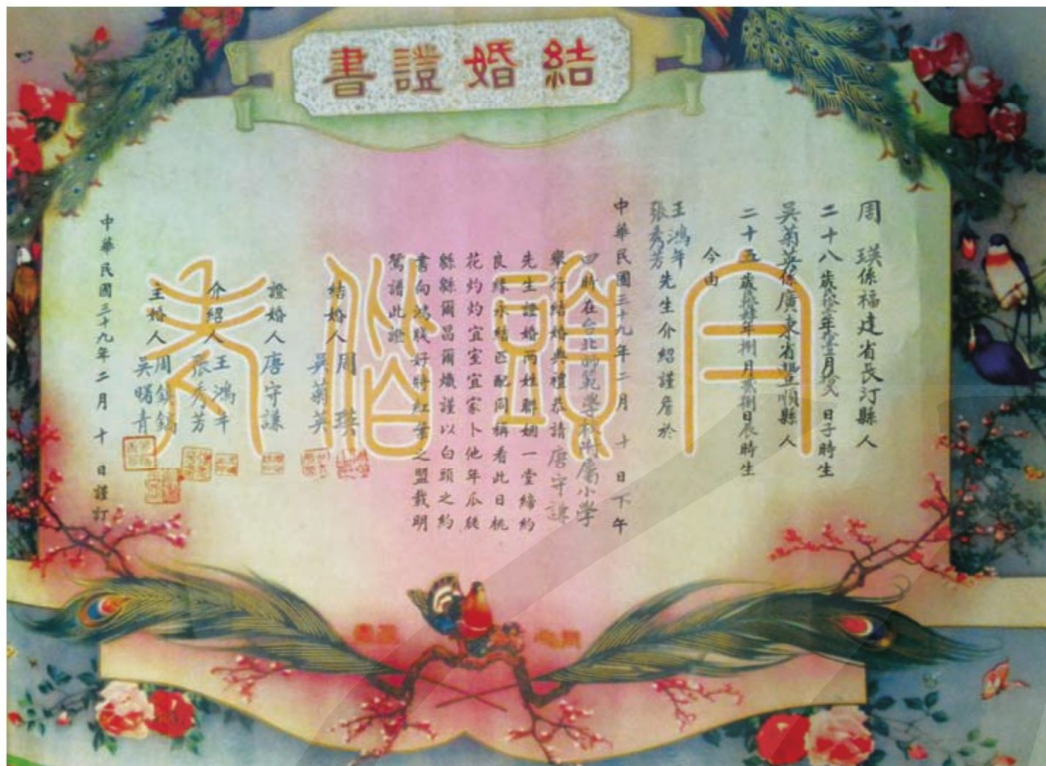 結婚證書
白頭偕老
周 瑛係福建省長汀縣人
二十八歲 年 月 日子時生
吳菊英係廣東省豐順縣人
二十五歲 年捌月貳捌日辰時生
今由
王鴻年
張秀芳 先生介紹謹詹於
中華民國三十九年二月 十 日下午
四時在台北師範學校附屬小學
舉行結婚典禮恭請唐守謙
先生證婚兩姓聯姻一堂締約
良緣永結匹配同稱看此日桃
花灼灼宜室宜家卜他年瓜瓞
緜緜爾昌爾熾謹以白頭之約
書向鴻牋好將紅葉之盟載明
鴛譜此證
結婚人 周 瑛
吳菊英
證婚人 唐守謙
介紹人 王鴻年
張秀芳
主婚人 周鎮
吳曙青
中華民國三十九年二月 十 日謹訂